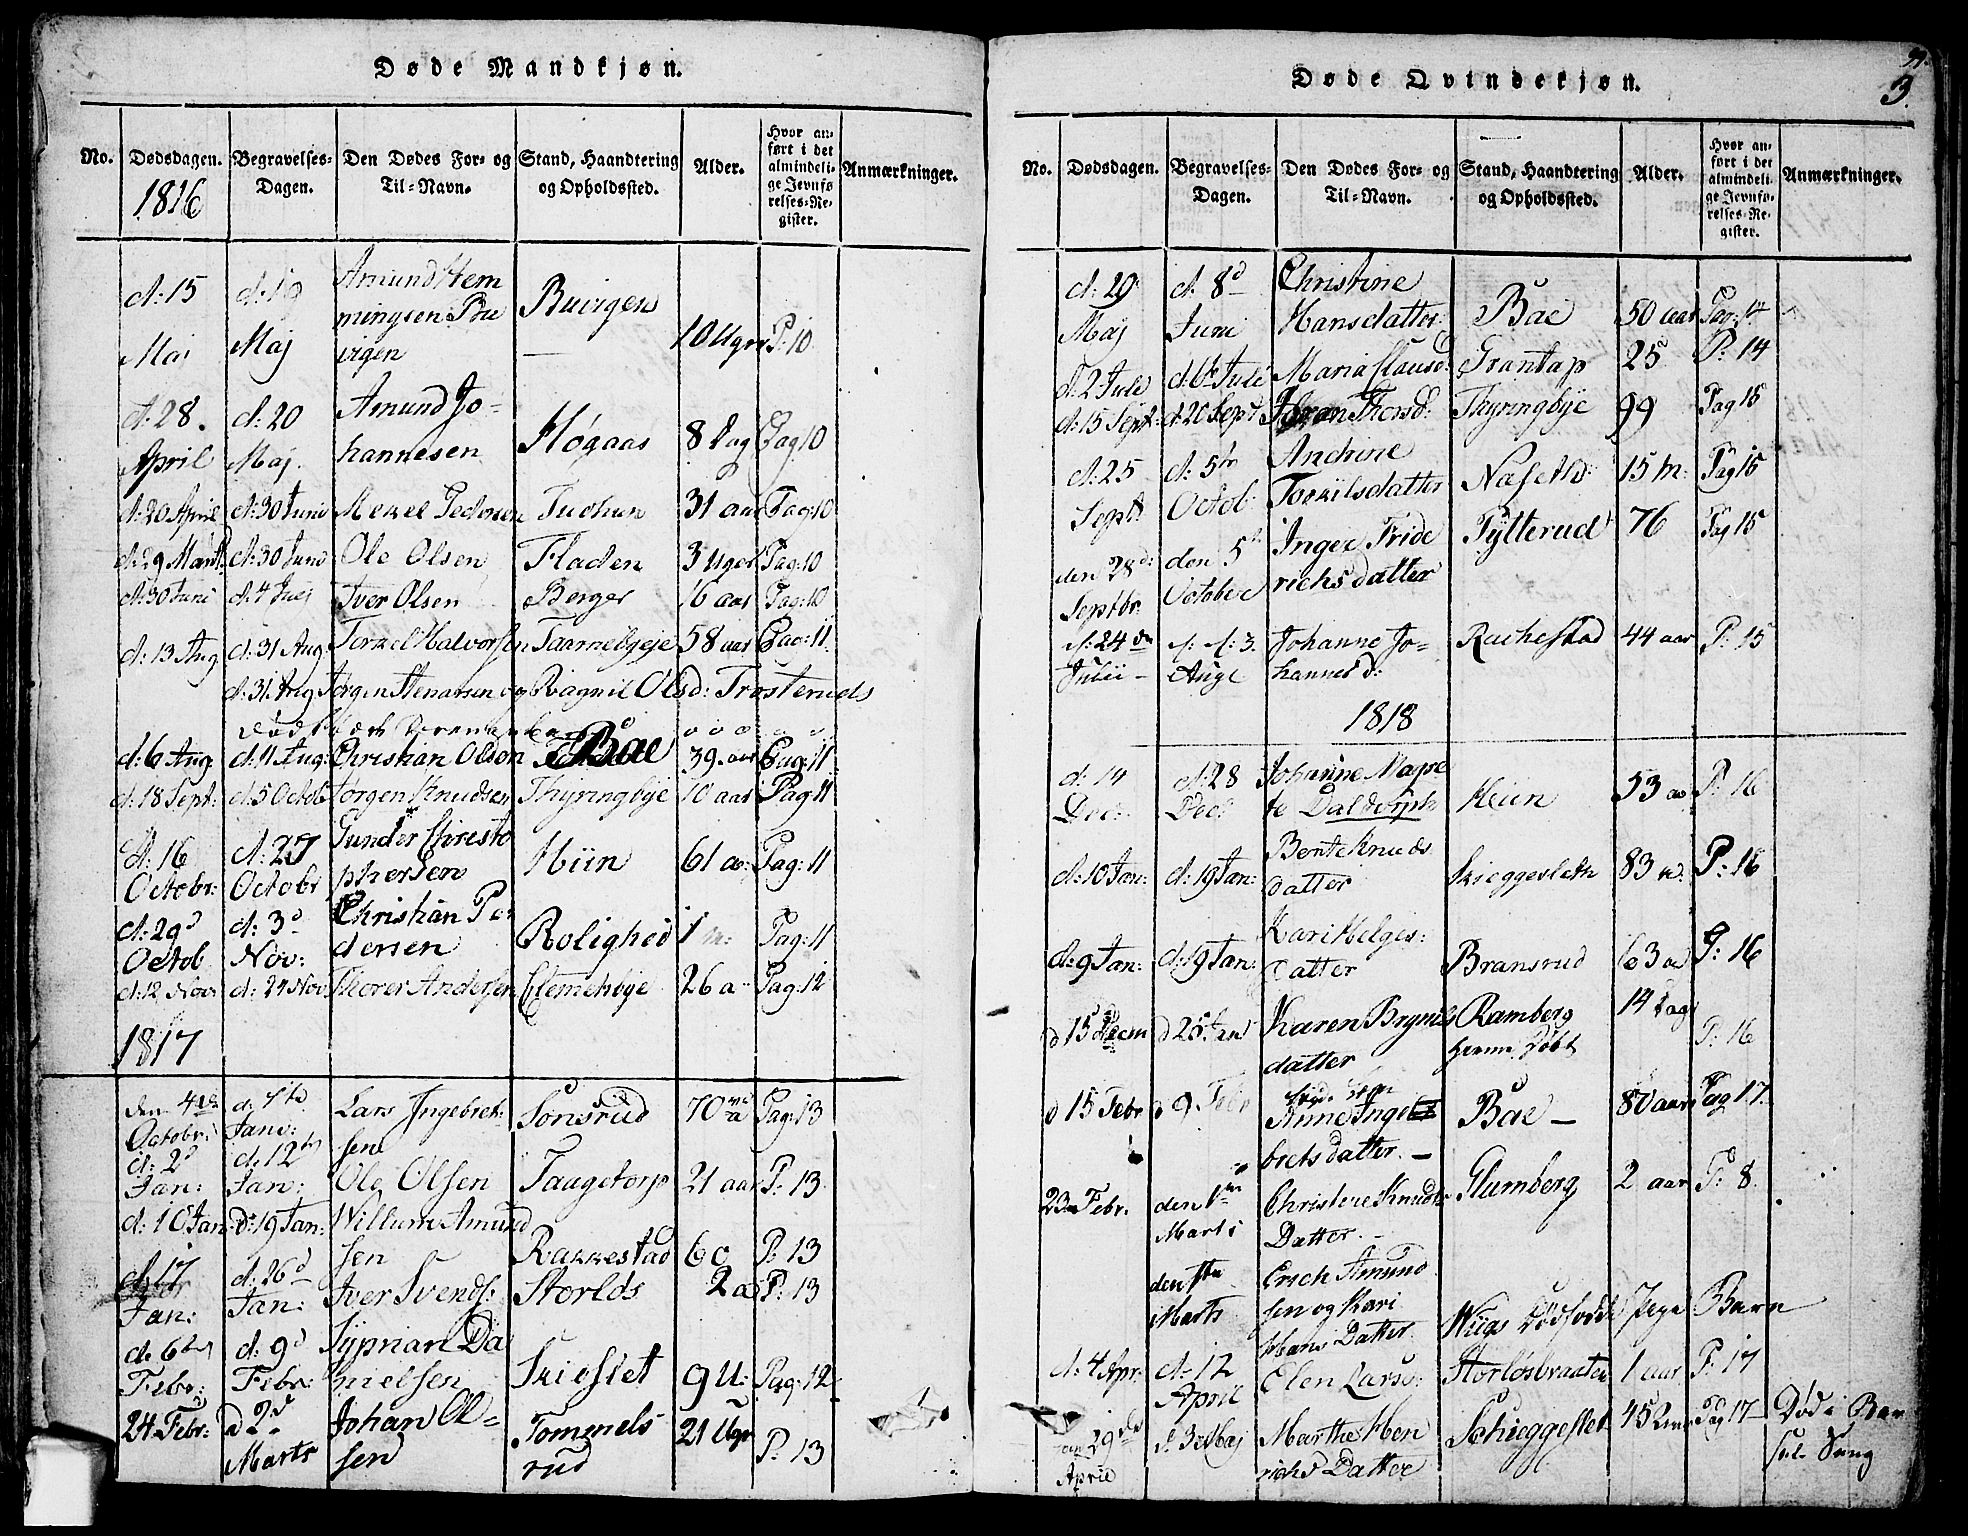 Døde Mandkjøn.
No. Dødsdagen. Begravelses-Dagen. Den Dødes For- og Til-Navn. Stand, Haandtering og Opholdssted. Alder. Hvor anført i det almindelige Jevnførelses-Register. Anmærkninger.
1816
d: 15 Maj d: 19 Maj Amund Hemmingsen Buvigen 10 Uger P: 10
d: 28. April d: 20 Maj. Amund Johannesen Høgaas 8 Dag Pag: 10
d: 20 April d: 30 Juni Pedersen 31 aar Pag: 10
d: 29 Marti d: 30 Juni Ole Olsen Fladen 3 Uger Pag: 10
d: 30 Juni d: 4 Juli Iver Olsen Berger 16 aar Pag: 10
d: 13 Aug d: 31 Aug: Torkel Halvorsen Taarnebyeje 58 aar Pag: 11
d: 31 Aug Jørgen Stenarsen og Ragnil Olsd: Trosteruds
d: 6 Aug d: 11 Aug: Christian Olsen Bae 39 aar Pag: 11
d: 18 Sept: d: 5 Octob Jørgen Knudsen Thyringbye 10 aar Pag: 11
d: 16 Octobr: d: 27 Octobr Gunder Christophersen Hiin 61 aar Pag: 11
d: 29d Octob d: 3d Nov: Christian Pedersen Rolighed 1 m: Pag: 11
d: 12 Nov: d: 24 Nov Thorer Andersen Clemehøye 26 a Pag: 12
1817
den 4de Octobr: d: 7de Janv: Lars Ingebretsen Sonsrud 70 a Pag: 13
d: 2d Jan: d: 12te Jan: Ole Olsen Taagetorp 21 aar P: 13
d: 10 Jan: d: 19 Jan: Willum Amundsen Rakkestad 60 P: 13
d: 17 Jan: d: 26d Jan: Iver Svends: Storlds 2 a P: 13
d: 6te Febr: d: 9d Febr: Syprian Danielsen Skieslet 9 U: Pag: 12
24 Febr: d 2d Marts Johan Olsen Tommelsrud 21 Ugr P: 13
Døde Qvindekjøn.
3.
No. Dødsdagen. Begravelses-Dagen. Den Dødes For- og Til-Navn. Stand, Haandtering og Opholdssted. Alder. Hvor anført i det almindelige Jevnførelses-Register. Anmærkninger.
d: 29 Maj d. 8d Juni Christine Hansdatter Bae 50 aar Pag: 14
d. 2 Juli d. 6te Juli Maria Clausd: Grantap 25 P: 14
d: 15 Sept: d: 20 Sept Thorsd: Thyringbye 99 Pag 15
d: 25 Septb d: 5te Octob: Andrine Torkilsdatter Naseth: 15 m: Pag 15
den 28d: Septbr. den 5te October Inger Friderichsdatter Tytterud 76 Pag 15
d: 24de Julii d: 3. Aug Johanne Johannesd: Rachestad 44 aar P: 15
1818
d: 14 Dec: d: 28 Dec: Johanne Magrete Daldorph Heun 53 aar P: 16
d: 10 Jan: d: 19 Jan: Bente Knudsdatter Skieggesleth 83 a. P: 16
d: 9 Jan: d: 19 Jan: Kari Helgesdatter Bransrud 63 a P: 16
d 15 Decm d 25 Jan Karen Brynilsdatter Ramberg hjemme døbt 14 Dag P: 16
d 15 Febr d 9 Febr Anne Ingebretsdatter Bae 80 aar Pag 17
23 Febr. den 1ste Marti Christine Knudsdatter Glumberg 2 aar P: 8
den 1ste Marts Erich Amundsen og Kari Hans Datter Wiigs Dødfødt Pige Barn
d. 4 Apr: d: 12 April Elen Larsd: Storløsbraaten 1 aar P: 17
29de April d. 3de Maj Marthe Henrichs Datter Schieggeslet 45 aar Pag 17 Død i Barsel Seng